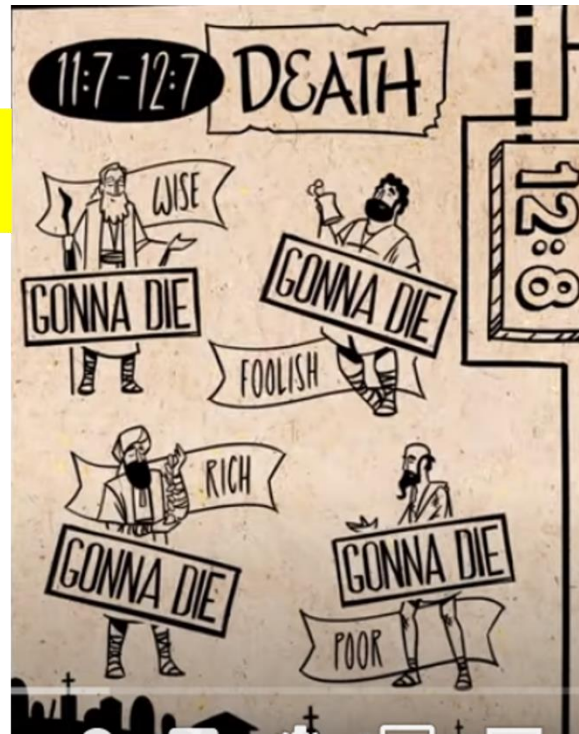 11:7-12:7 DEATH
12:8
WISE
GONNA DIE
GONNA DIE
FOOLISH
RICH
GONNA DIE
GONNA DIE
POOR